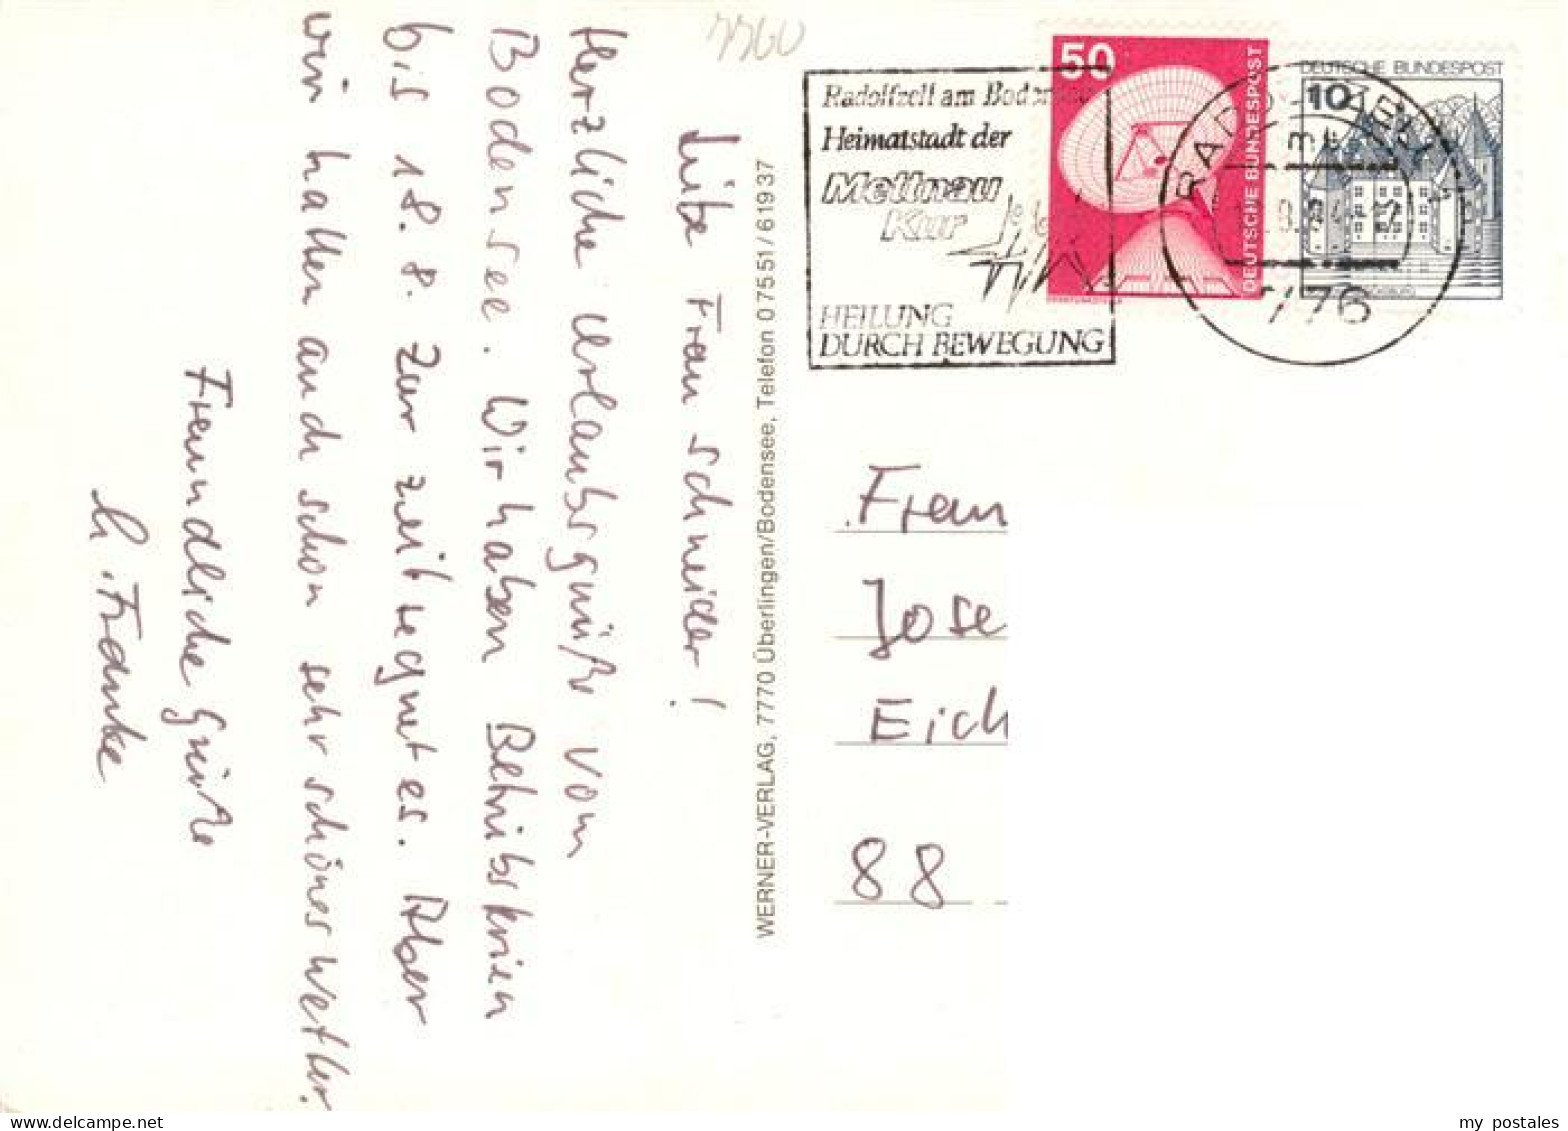 7760
Liebe Frau Schneider!
Herzliche Urlaubsgrüße vom
Bodensee. Wir haben Betriebsferien
bis 18.8. Zur Zeit regnet es. Aber
wir hatten auch schon sehr schönes Wetter.
Freundliche Grüße
Franke
WERNER-VERLAG, 7770 Überlingen/Bodensee, Telefon 07551/61937
Radolfzell am Bodensee
Heimatstadt der
Mettnau
Kur
HEILUNG
DURCH BEWEGUNG
50
DEUTSCHE BUNDESPOST
DEUTSCHE BUNDESPOST
10
776
Frau
Jose
Eich
88
my postales